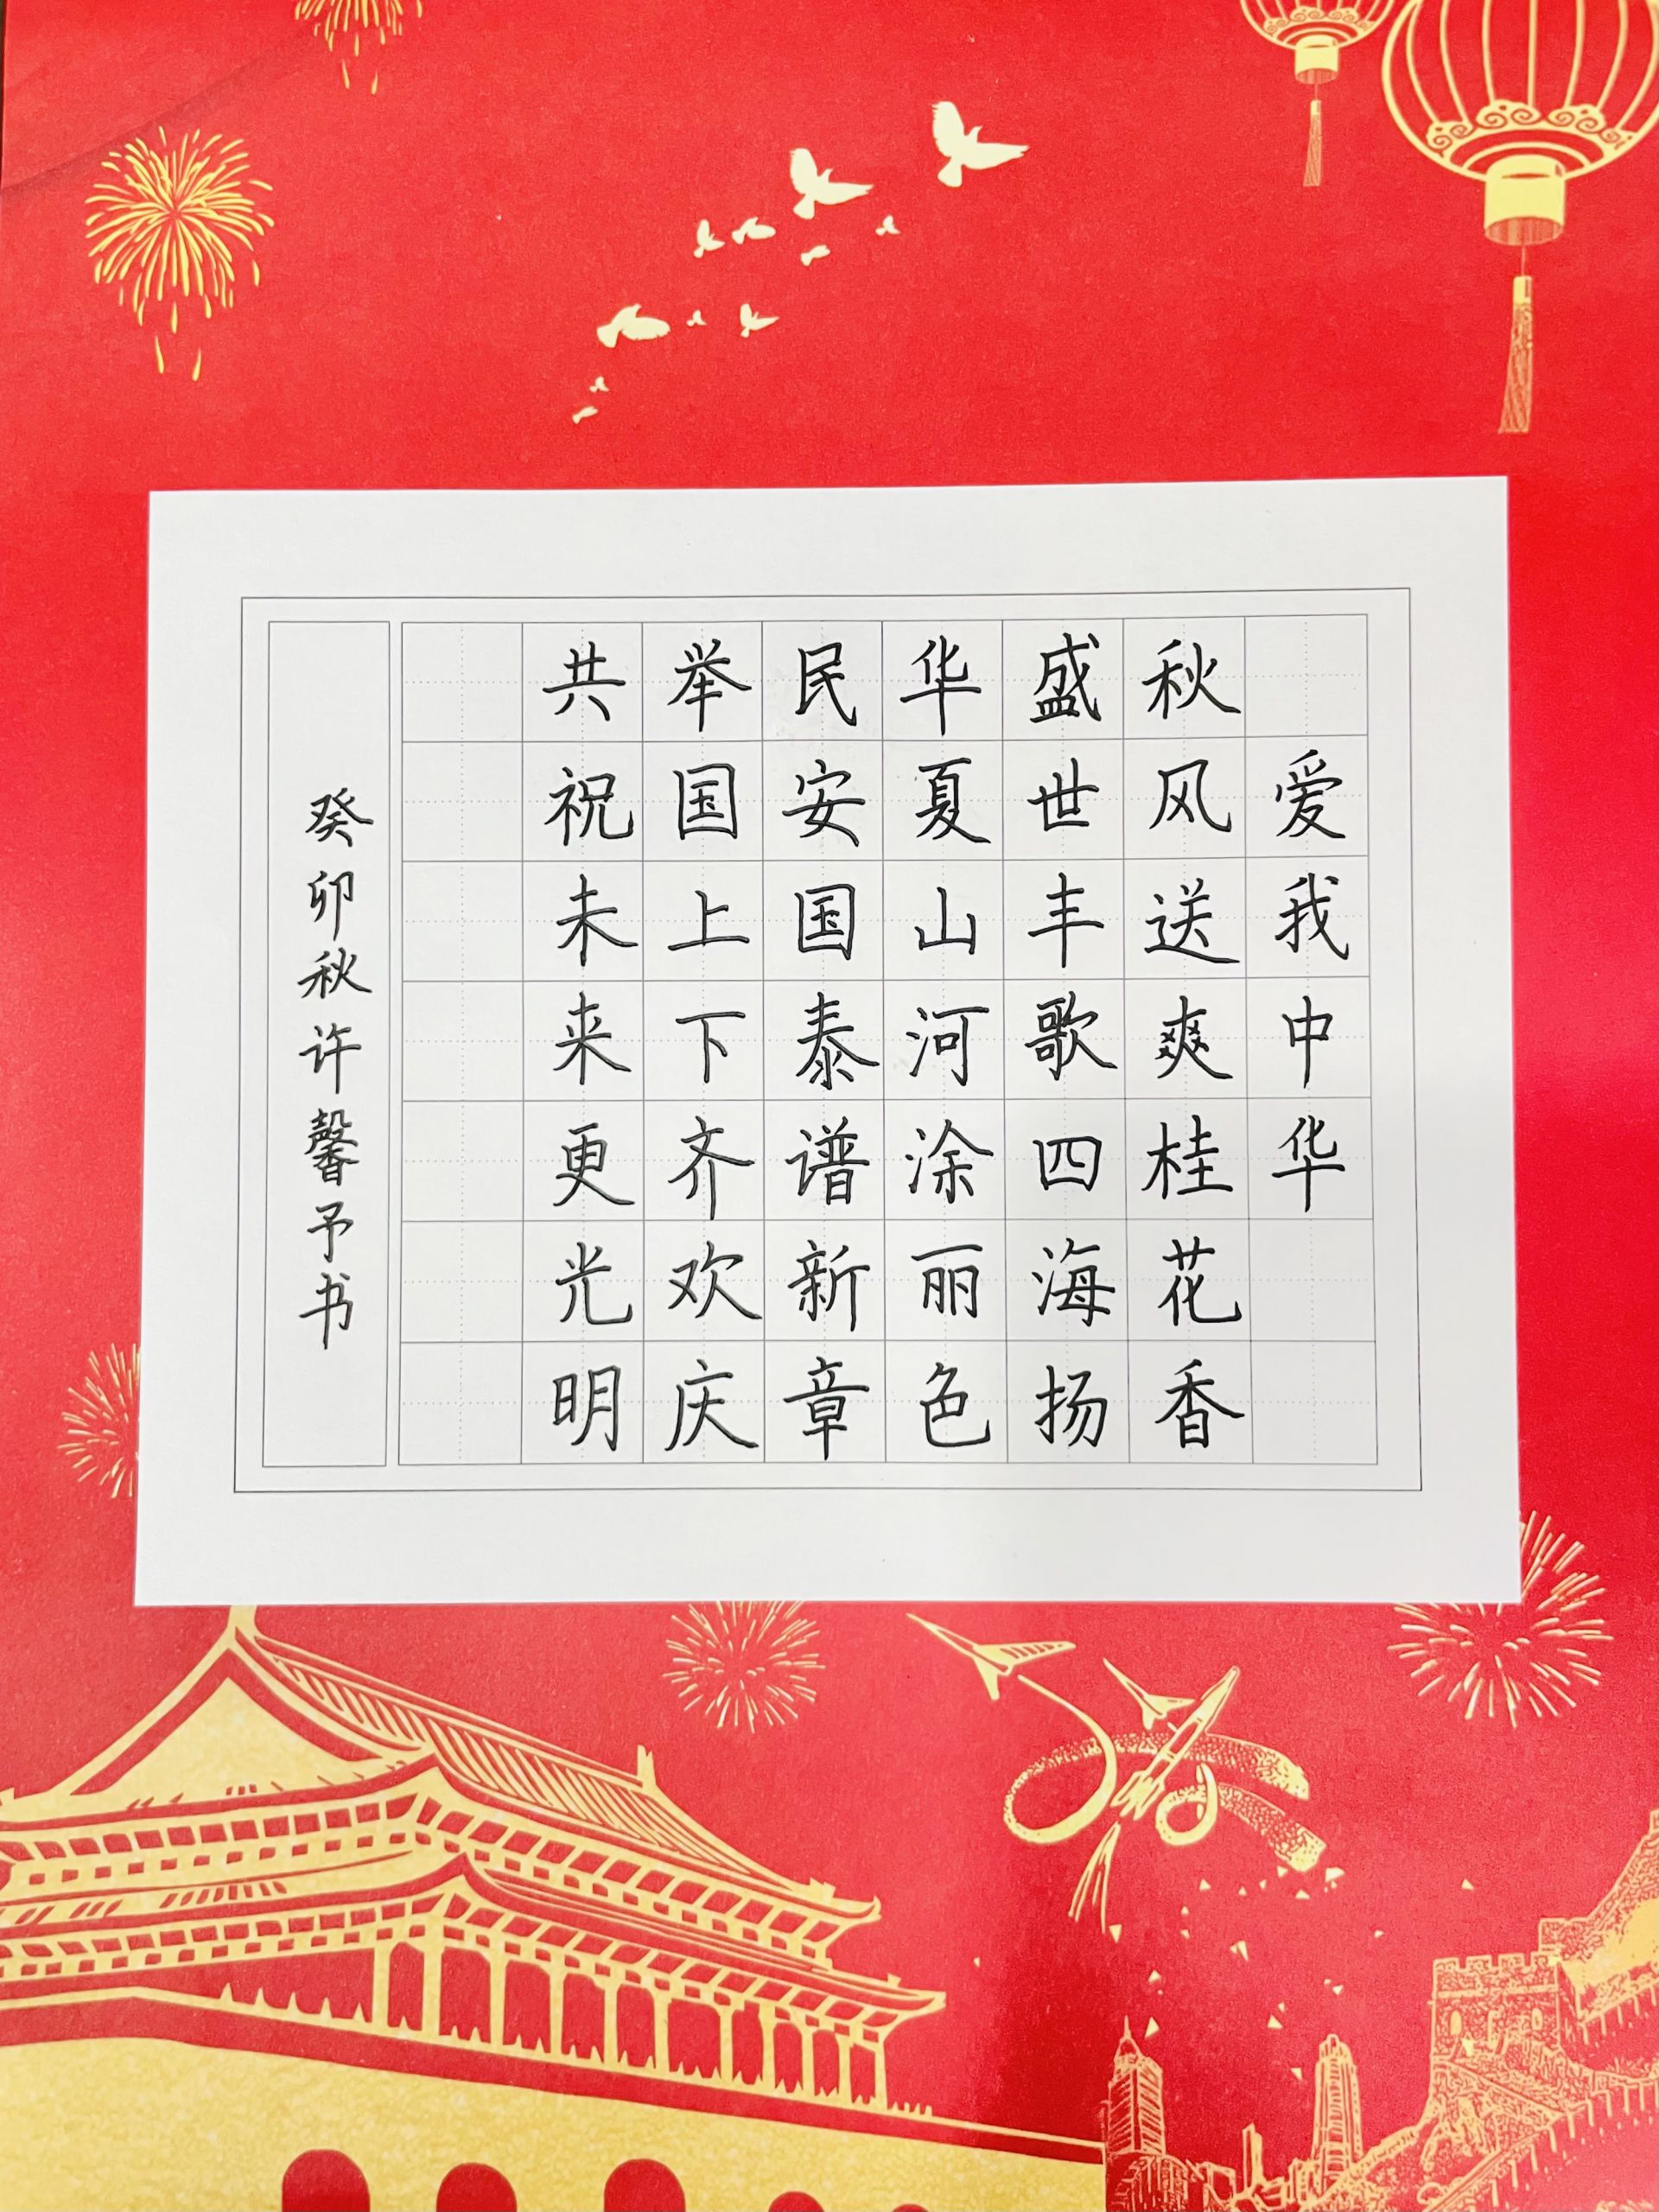 爱我中华
秋风送爽桂花香
盛世丰歌四海扬
华夏山河涂丽色
民安国泰谱新章
举国上下齐欢庆
共祝未来更光明
癸卯秋许馨予书